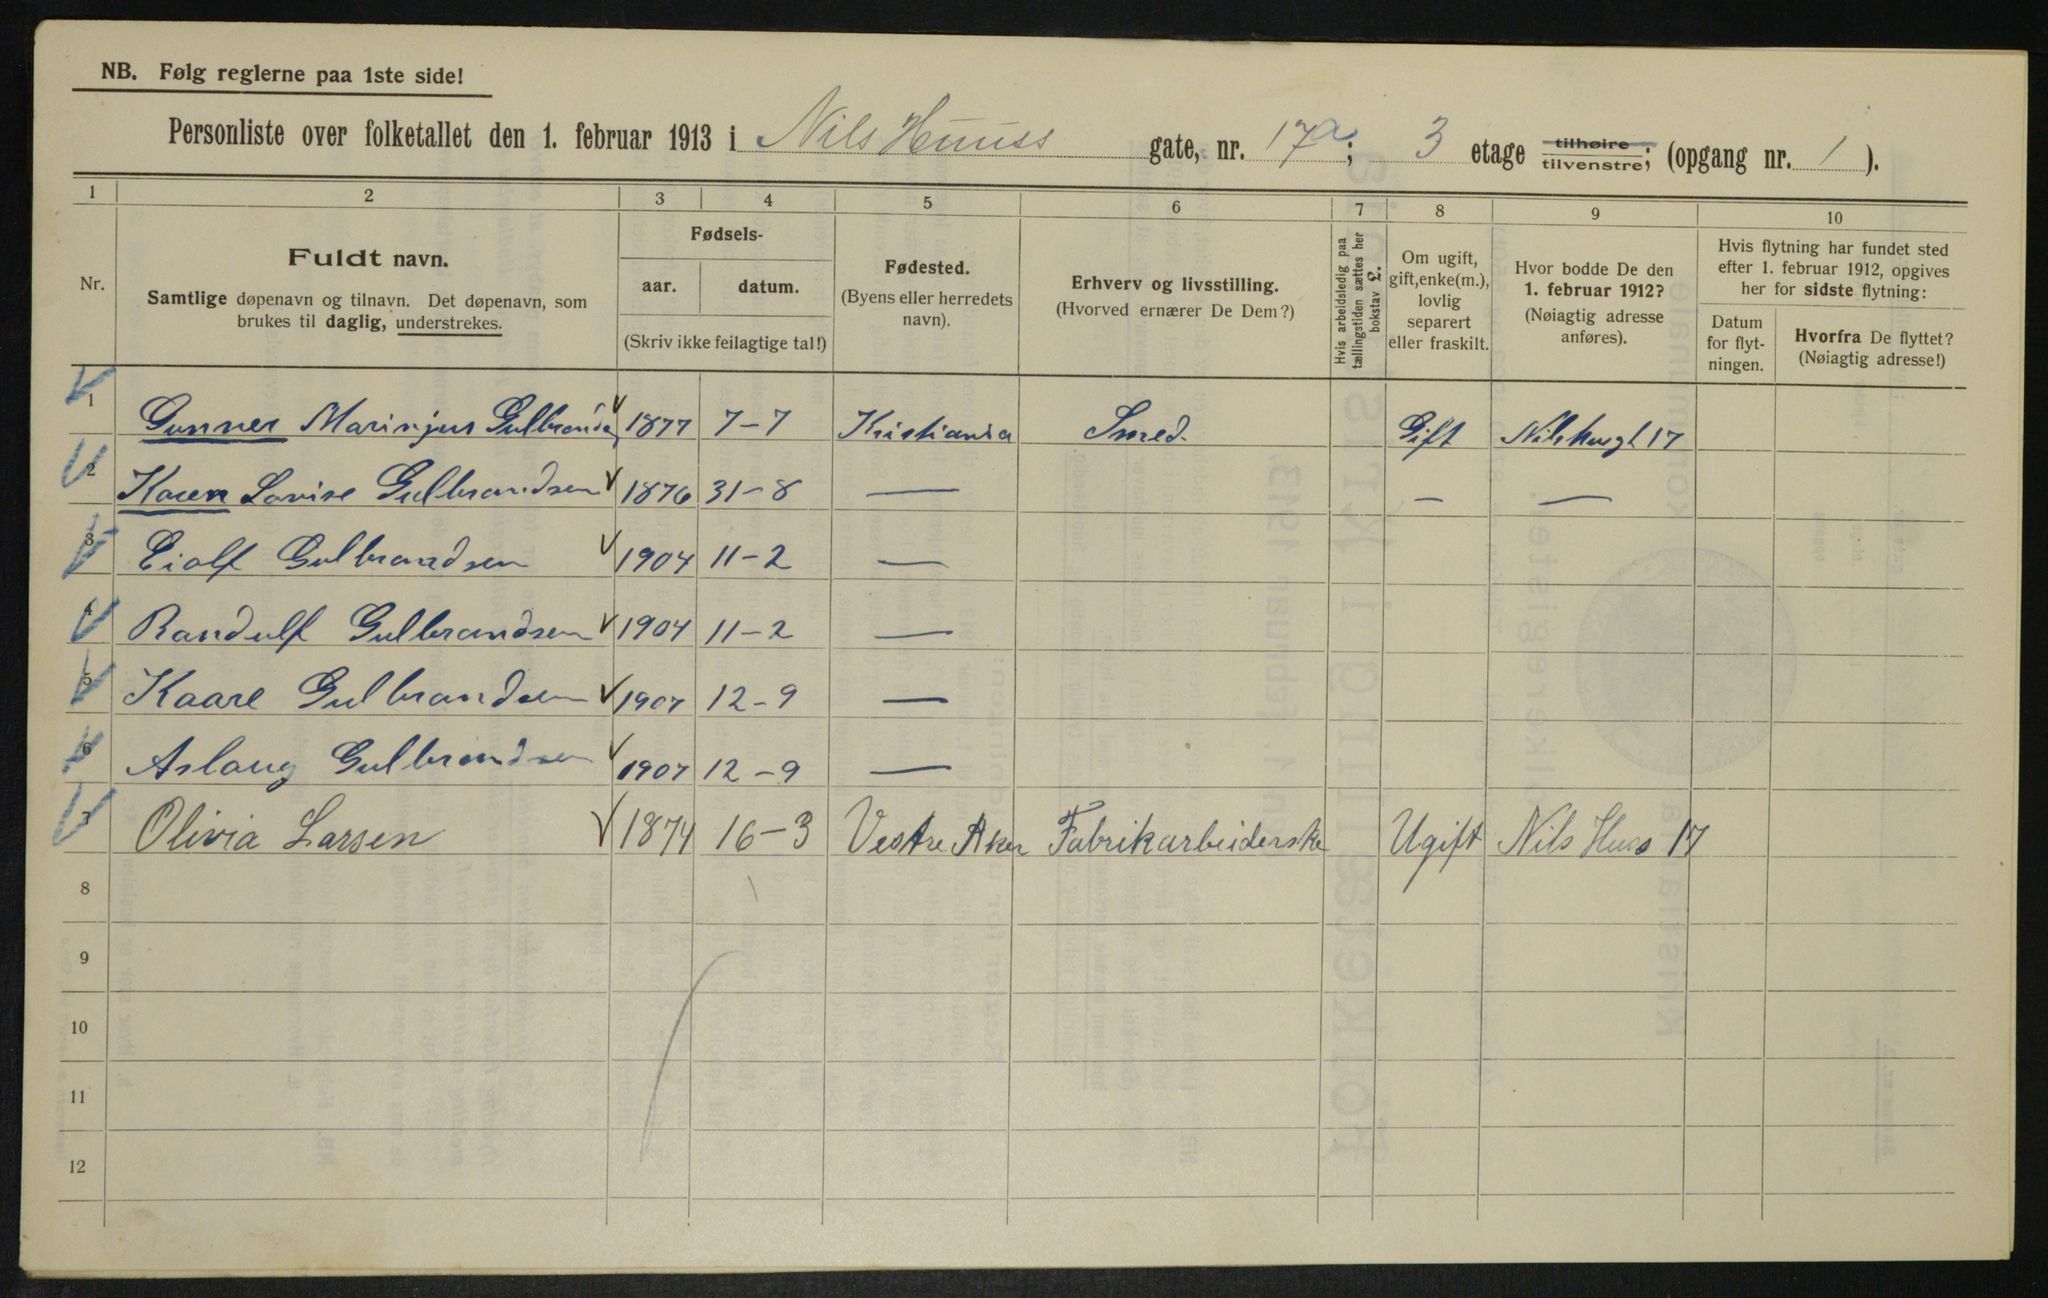 NB. Følg reglerne paa 1ste side!
Personliste over folketallet den 1. februar 1913 i Nils Huuss gate, nr. 17a; 3 etage tilhøire tilvenstre; (opgang nr. 1 ).
1 2 3 4 5 6 7 8 9 10
Nr.
Fuldt navn.
Samtlige døpenavn og tilnavn. Det døpenavn, som
brukes til daglig, understrekes.
Fødsels-
aar. datum.
(Skriv ikke feilagtige tal!)
Fødested.
(Byens eller herredets
navn).
Erhverv og livsstilling.
(Hvorved ernærer De Dem?)
Hvis arbeidsledig paa
tællingstiden sættes her
bokstav £.
Om ugift,
gift, enke(m.),
lovlig
separert
eller fraskilt.
Hvor bodde De den
1. februar 1912?
(Nøiagtig adresse
anføres).
Hvis flytning har fundet sted
efter 1. februar 1912, opgives
her for sidste flytning:
Datum
for flyt-
ningen.
Hvorfra De flyttet?
(Nøiagtig adresse!)
1 Gunner Marinjus Gulbrandsen 1877 7-7 Kristiania Smed. Gift Nilshusgt 17
2 Karen Lovise Gulbrandsen 1876 31-8 — — —
3 Eiolf Gulbrandsen 1904 11-2 —
4 Randulf Gulbrandsen 1904 11-2 —
5 Kaare Gulbrandsen 1907 12-9 —
6 Aslaug Gulbrandsen 1907 12-9 —
7 Olivia Larsen 1874 16-3 Vestre Aker Fabrikarbeiderske Ugift Nils Huss 17
8
9
10
11
12